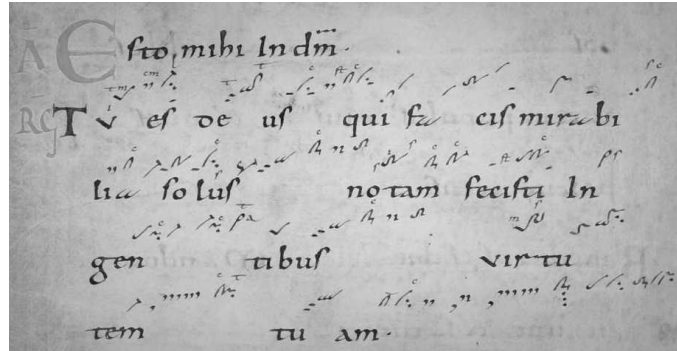 A Esto mihi In dm̅.
RG TU es de us qui fa cis mirabi
lia solus notam fecisti In
gen tibus virtu
tem tu am.